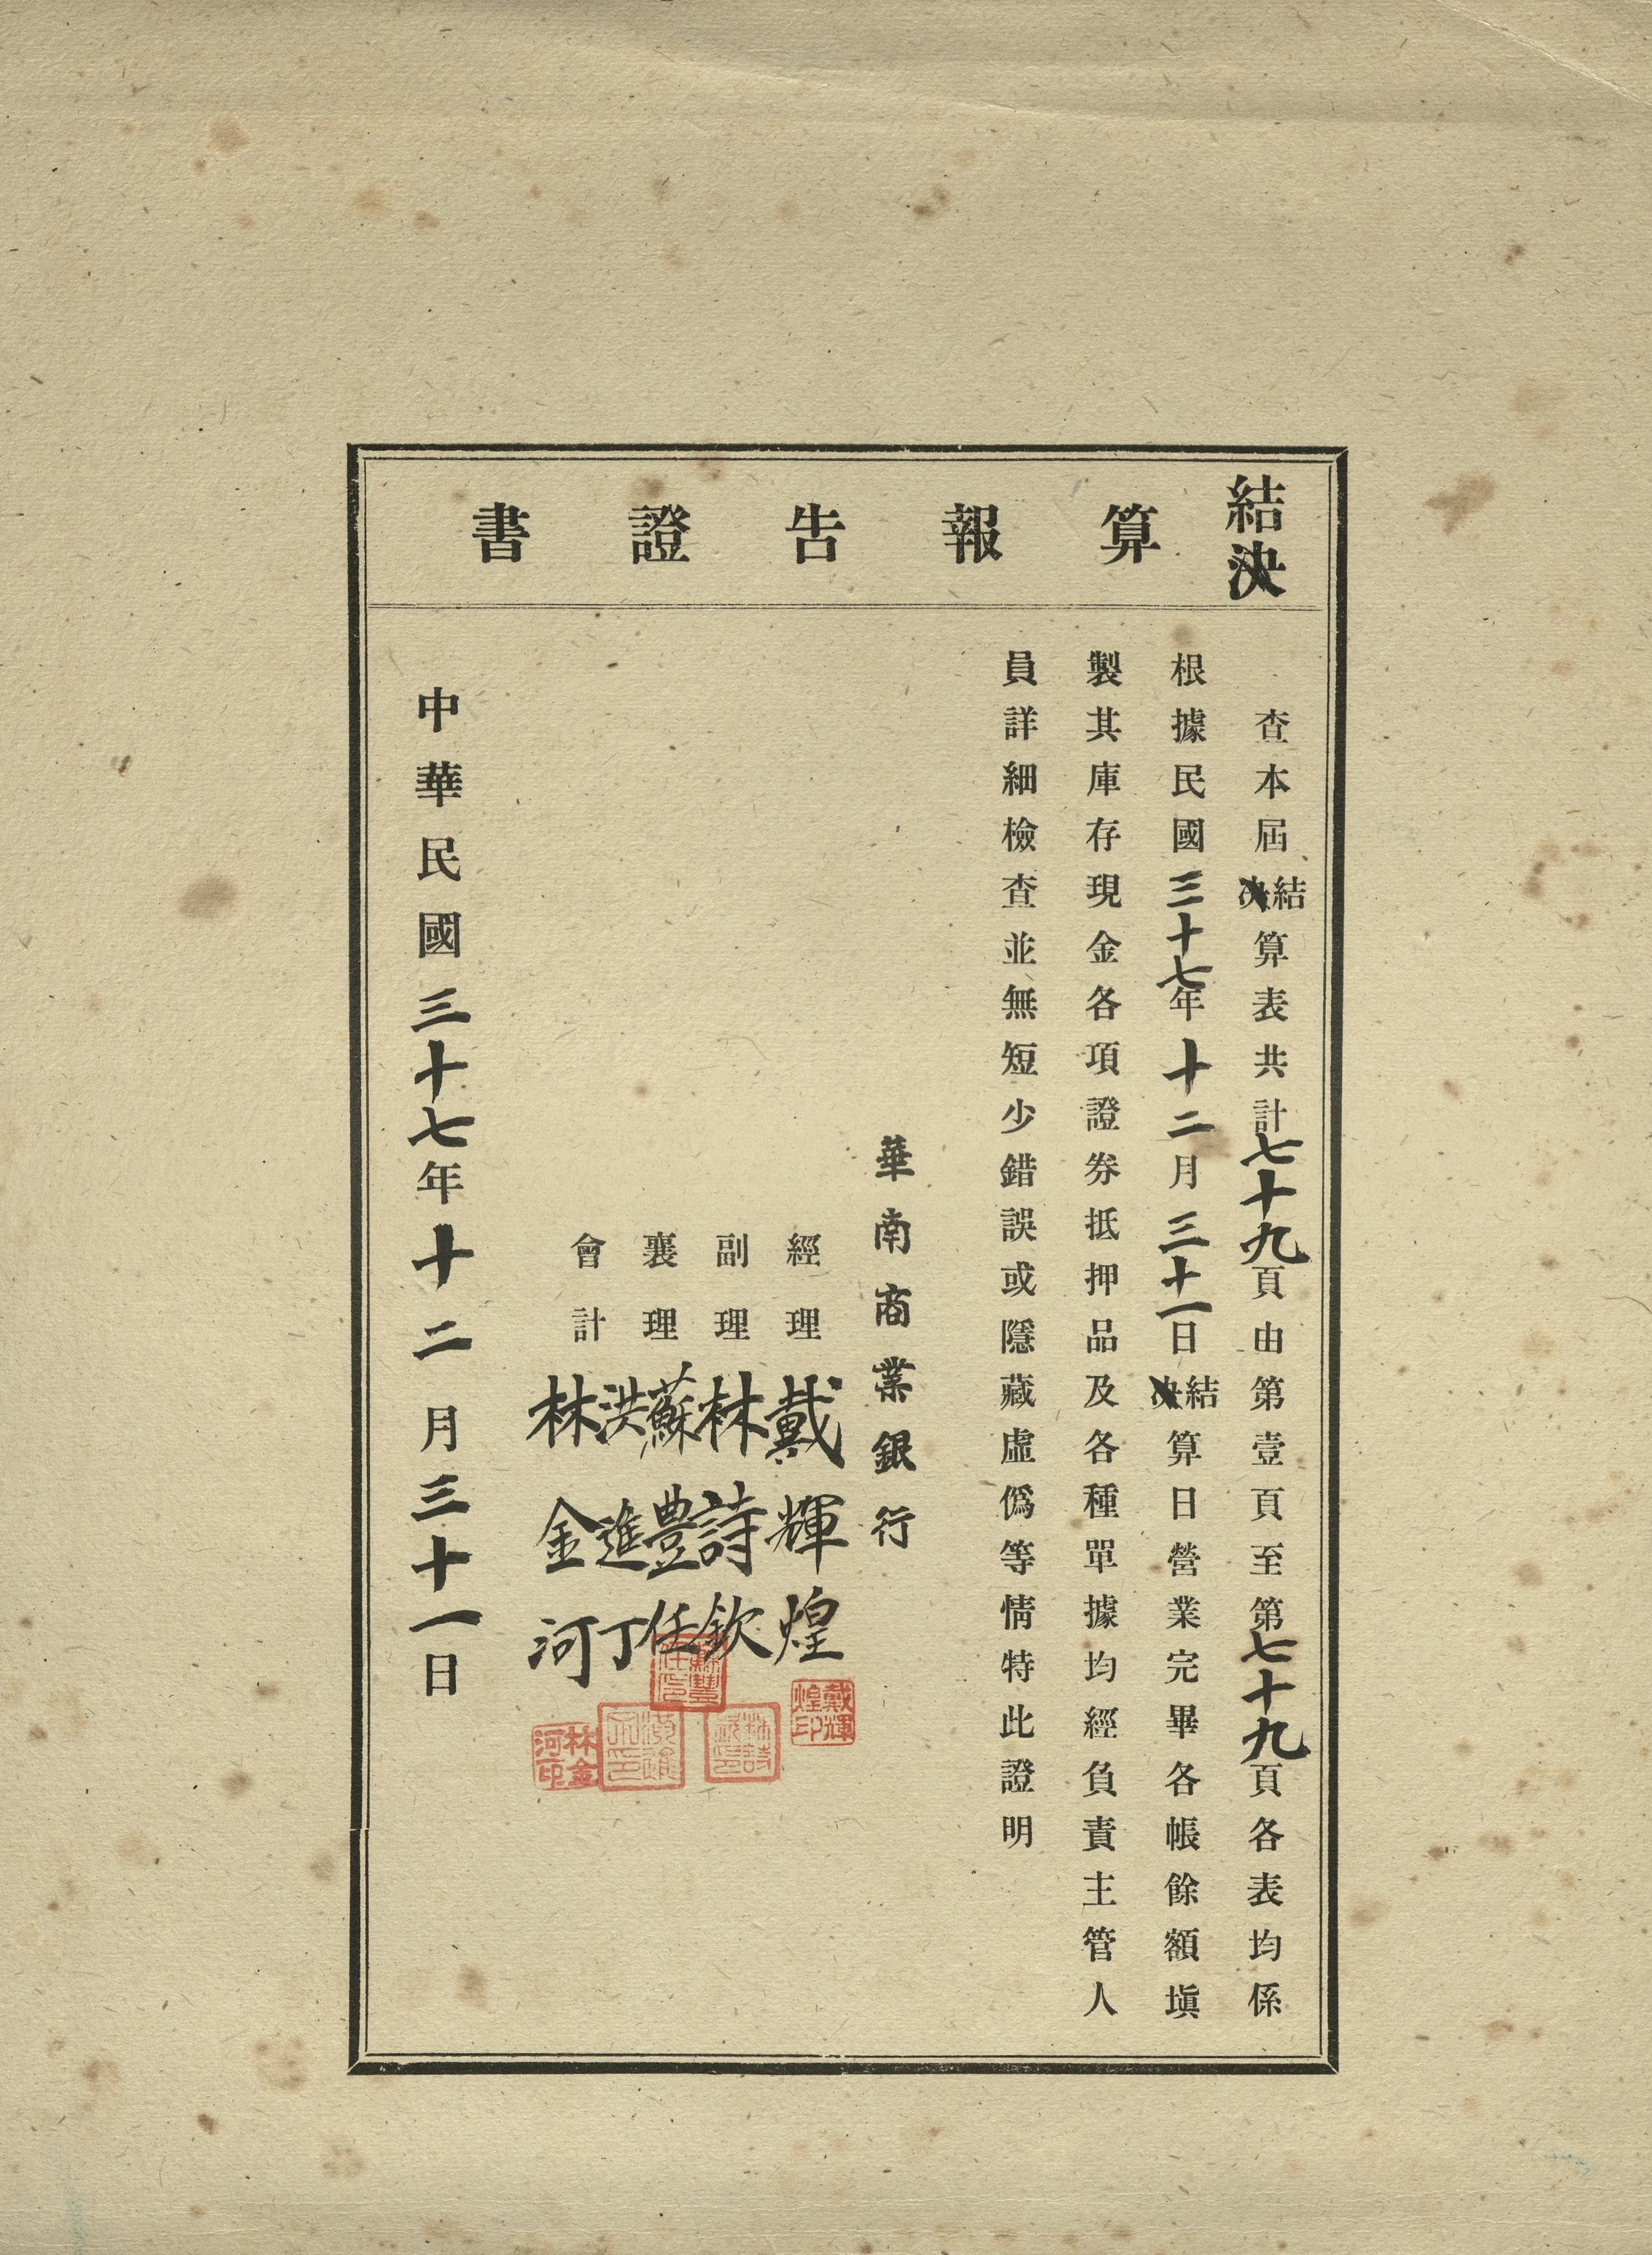 結決算報告證書
查本屆結決算表共計七十九頁由第壹頁至第七十九頁各表均係
根據民國三十七年十二月三十一日結決算日營業完畢各帳餘額塡
製其庫存現金各項證券抵押品及各種單據均經負責主管人
員詳細檢查並無短少錯誤或隱藏虛僞等情特此證明
華南商業銀行
經理 戴輝煌
副理 林詩欽
襄理 蘇豊任
洪進丁
會計 林金河
戴輝煌印
林詩欽印
蘇豐任印
洪進丁印
林金河印
中華民國三十七年十二月三十一日